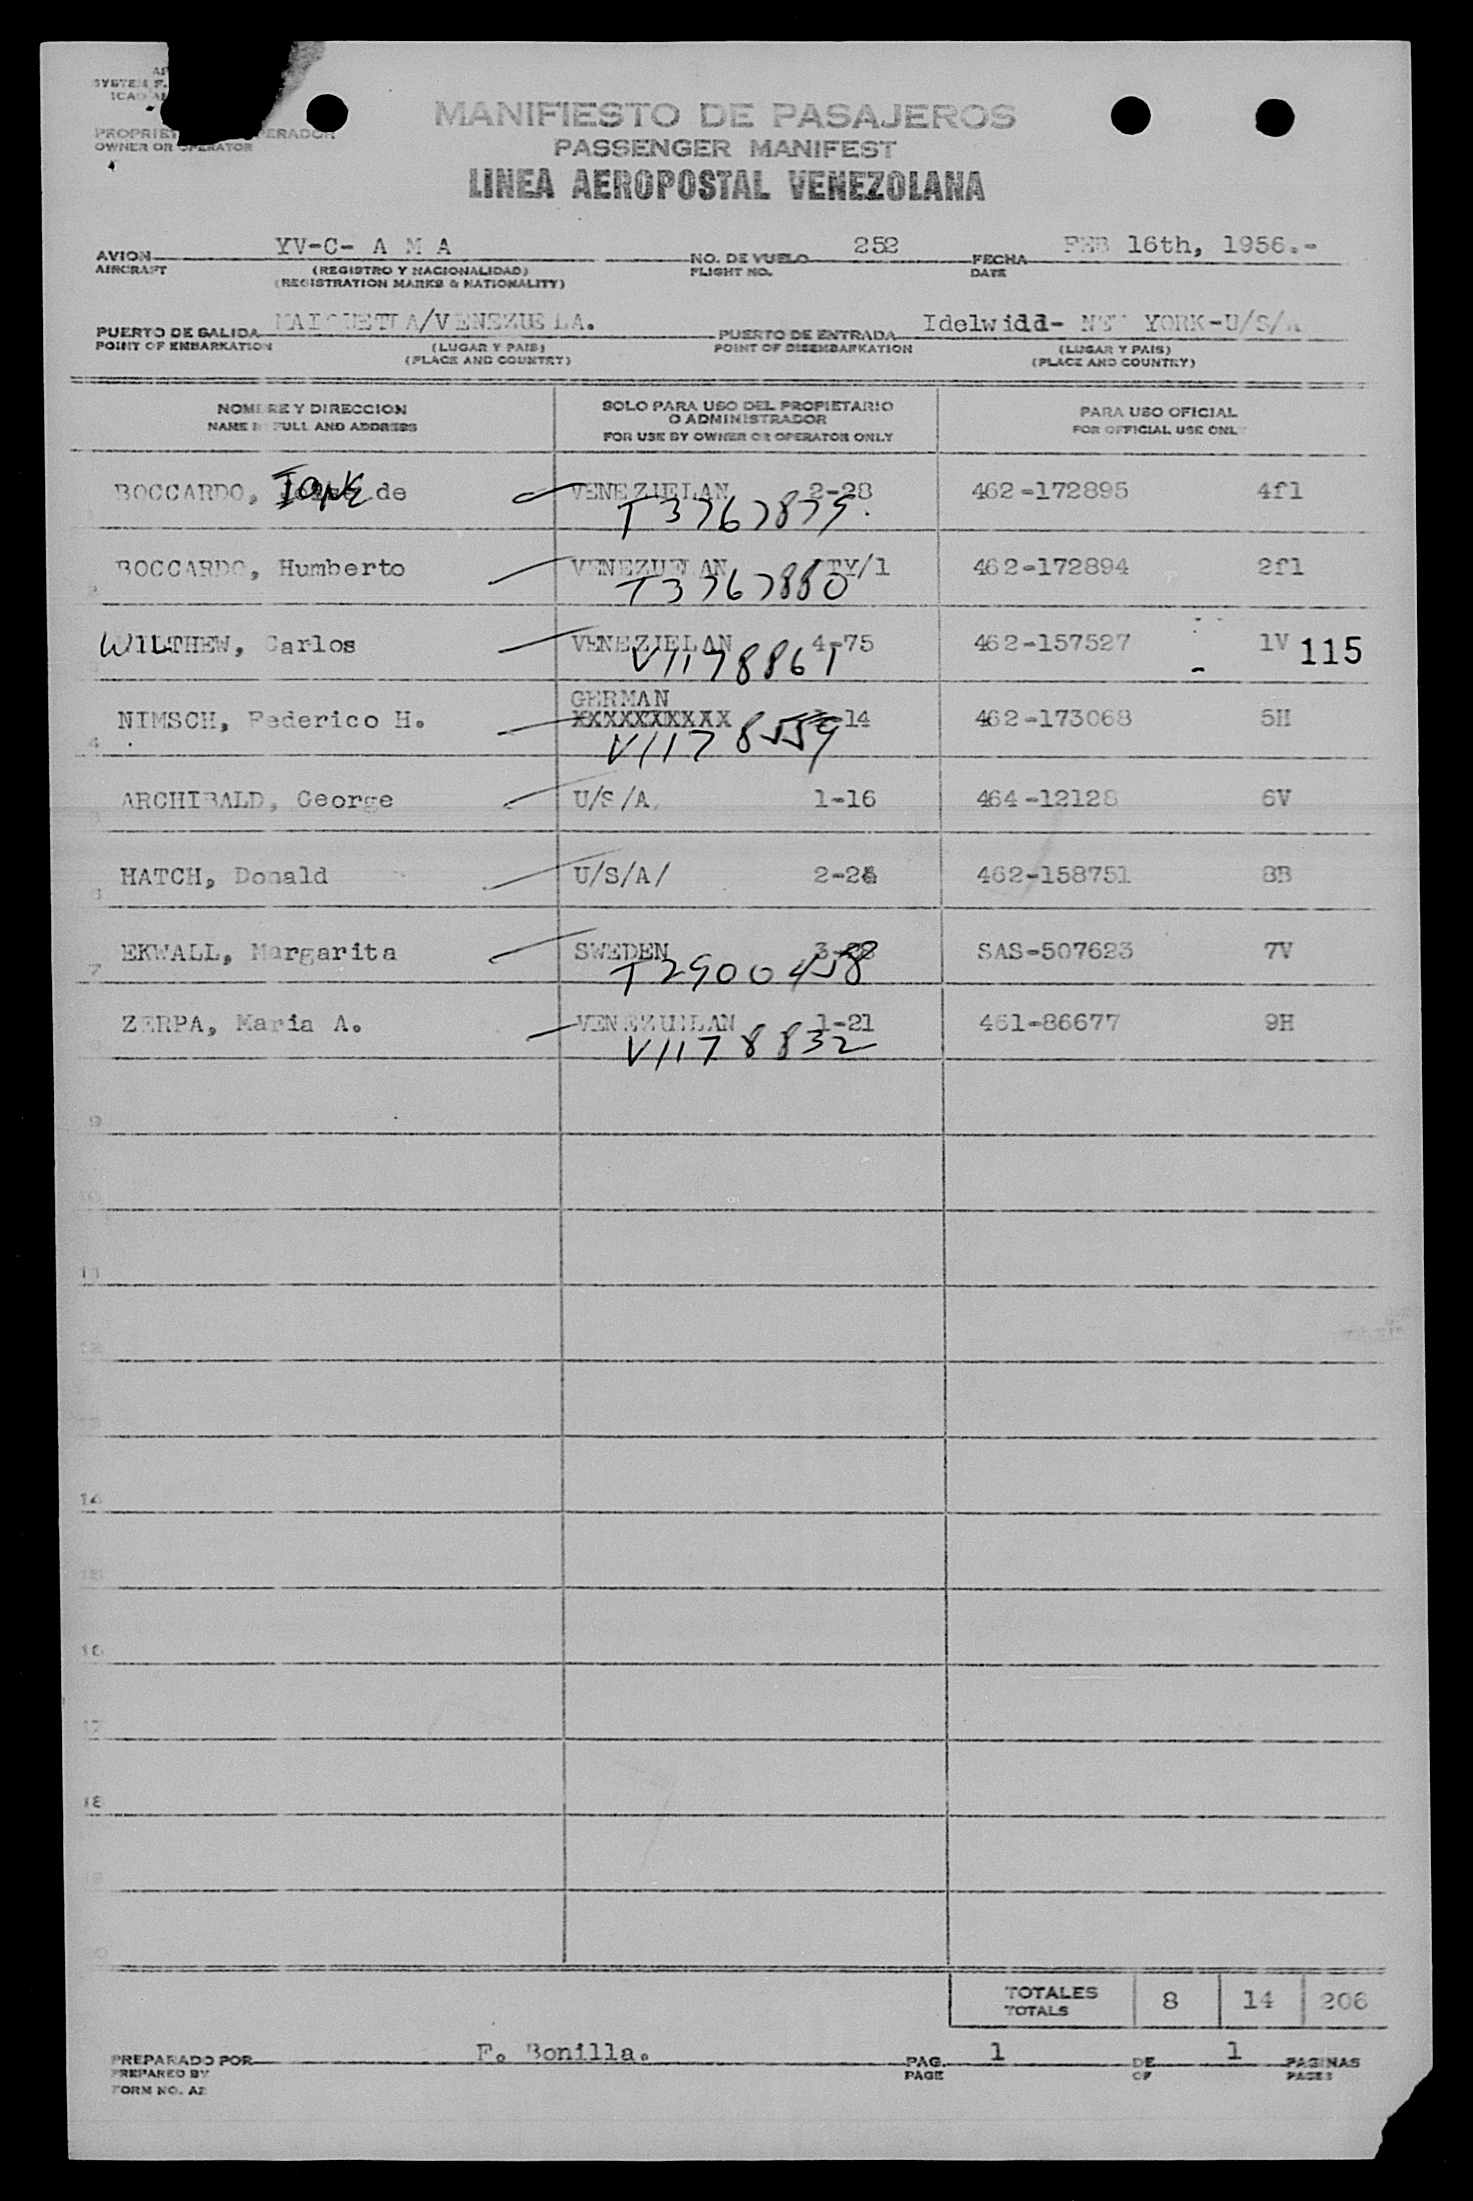 MANIFIESTO DE PASAJEROS
PASSENGER MANIFEST
OWNER OR OPERATOR
LINEA AEROPOSTAL VENEZOLANA
AVION YV-C- A M A NO. DE VUELO 252 FECHA FEB 16th, 1956.-
AIRCRAFT (REGISTRO Y NACIONALIDAD) FLIGHT NO. DATE
(REGISTRATION MARKS & NATIONALITY)
PUERTO DE SALIDA MAIQUETIA/VENEZUELA. PUERTO DE ENTRADA Idelwidd- NEW YORK-U/S/A
POINT OF EMBARKATION (LUGAR Y PAIS) POINT OF DISEMBARKATION (LUGAR Y PAIS)
(PLACE AND COUNTRY) (PLACE AND COUNTRY)
NOMBRE Y DIRECCION SOLO PARA USO DEL PROPIETARIO PARA USO OFICIAL
O ADMINISTRADOR
NAME IN FULL AND ADDRESS FOR USE BY OWNER OR OPERATOR ONLY FOR OFFICIAL USE ONLY
BOCCARDO, de VENEZUELAN 2-28 462-172895 4f1
T3767879.
BOCCARDO, Humberto VENEZUELAN TY/1 462-172894 2f1
T3767880
WILTHEW, Carlos VENEZUELAN 4-75 462-157527 1V 115
V1178861
GERMAN
NIMSCH, Federico H. XXXXXXXXXX -14 462-173068 5H
4 V1178559
ARCHIBALD, George U/S/A. 1-16 464-12128 6V
HATCH, Donald U/S/A/ 2-2 462-158751 8B
6
EKWALL, Margarita SWEDEN SAS-507623 7V
7 T2900458
ZERPA, Maria A. VENEZUELAN 1-21 461-86677 9H
V1178832
9
10
11
12
13
14
15
16
17
18
19
TOTALES 8 14 206
TOTALS
PREPARADO POR F. Bonilla. PAG. 1 DE 1 PAGINAS
PREPARED BY PAGE OF PAGES
FORM NO. A2